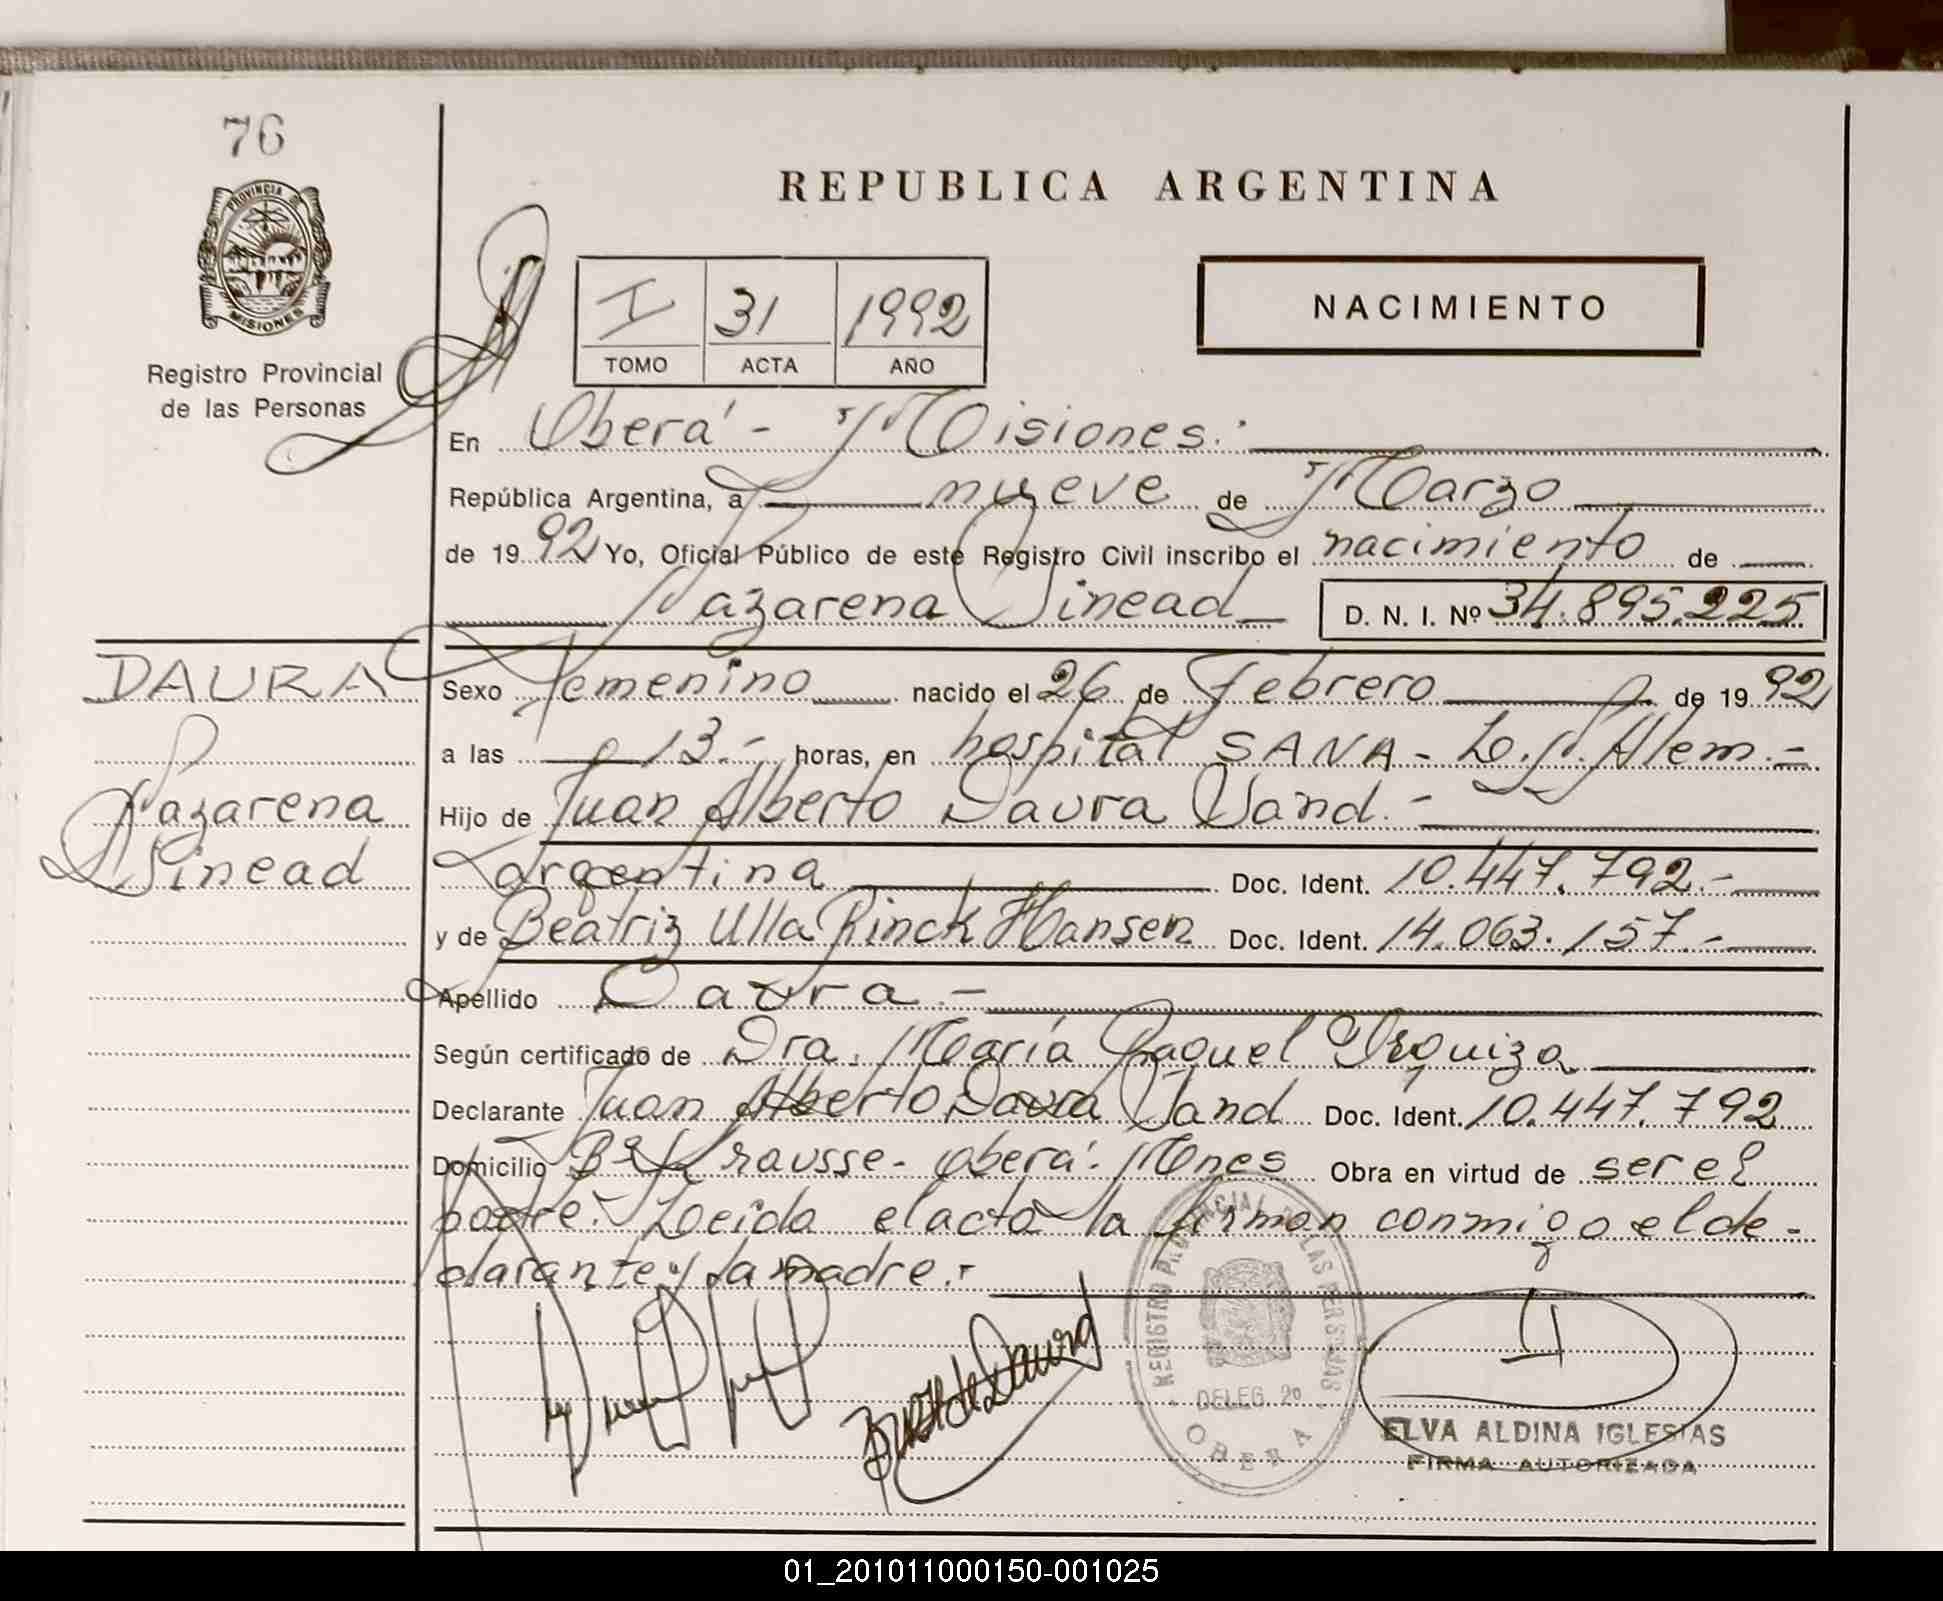 76
PROVINCIA DE
MISIONES
Registro Provincial
de las Personas
REPUBLICA ARGENTINA
I 31 1992
TOMO ACTA AÑO
NACIMIENTO
En Oberá - Misiones.-
República Argentina, a nueve de Marzo
de 1992 Yo, Oficial Público de este Registro Civil inscribo el nacimiento de
Nazarena Sinead D. N. I. Nº 34.895.225
DAURA
Nazarena
Sinead
Sexo Femenino nacido el 26 de Febrero de 1992
a las 13.- horas, en hospital SANA - L. N. Alem.-
Hijo de Juan Alberto Daura Vand.-
argentina Doc. Ident. 10.447.792.-
y de Beatriz Ulla Rinck Hansen Doc. Ident. 14.063.157.-
Apellido Daura.-
Según certificado de Dra. María Raquel Urquiza
Declarante Juan Alberto Daura Vand Doc. Ident. 10.447.792
Domicilio Bº Krausse - Oberá - Mnes Obra en virtud de ser el
padre. Leida el acta la firman conmigo el de-
clarante y la madre.-
REGISTRO PROVINCIAL DE LAS PERSONAS
DELEG. 2º
OBERA
ELVA ALDINA IGLESIAS
FIRMA AUTORIZADA
01_201011000150-001025